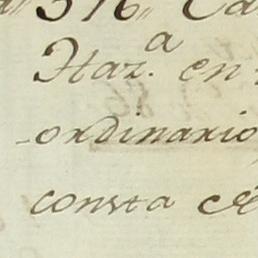 576
Haz.ª en
-ordinario
consta